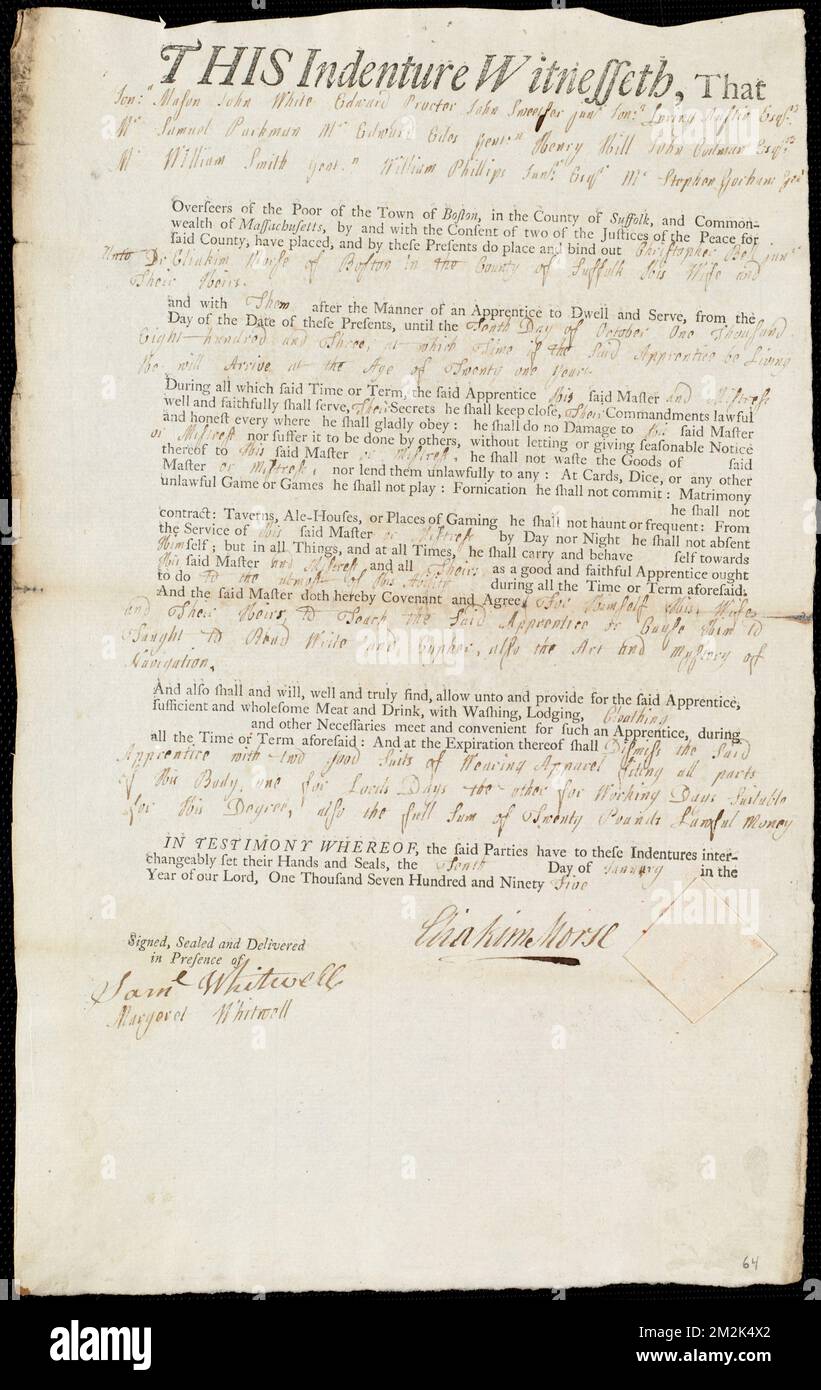 THIS Indenture Witnesseth, That
Jon.ⁿ Mason John White Edward Procter John Sweetser jun.ʳ Jon.ⁿ Loring Austin Esq.ʳˢ
Mʳ Samuel Parkman Mʳ Edward Edes Gent.ⁿ Henry Hill John Codman Esq.ʳˢ
Mʳ William Smith Gent.ⁿ William Phillips Jun.ʳ Esq.ʳ Mʳ Stephen Gorham Gent
Overseers of the Poor of the Town of Boston, in the County of Suffolk, and Common-
wealth of Massachusetts, by and with the Consent of two of the Justices of the Peace for
said County, have placed, and by these Presents do place and bind out Christopher Bell jun.ʳ
Unto Dr Eliakim Morse of Boston in the County of Suffolk His Wife and
Their Heirs.
and with Them after the Manner of an Apprentice to Dwell and Serve, from the
Day of the Date of these Presents, until the Tenth Day of October One Thousand
Eight hundred and Three, at which Time if the Said Apprentice be Living
He will Arrive at the Age of Twenty one Years
During all which said Time or Term, the said Apprentice His said Master and Mistress
well and faithfully shall serve, Their Secrets he shall keep close, Their Commandments lawful
and honest every where he shall gladly obey : he shall do no Damage to His said Master
or Mistress nor suffer it to be done by others, without letting or giving seasonable Notice
thereof to His said Master or Mistress, he shall not waste the Goods of said
Master or Mistress, nor lend them unlawfully to any : At Cards, Dice, or any other
unlawful Game or Games he shall not play : Fornication he shall not commit : Matrimony
he shall not
contract: Taverns, Ale-Houses, or Places of Gaming he shall not haunt or frequent : From
the Service of His said Master or Mistress by Day nor Night he shall not absent
Himself ; but in all Things, and at all Times, he shall carry and behave self towards
His said Master and Mistress and all Theirs as a good and faithful Apprentice ought
to do to the utmost of His Ability during all the Time or Term aforesaid.
And the said Master doth hereby Covenant and Agree For Himself His Wife
and Their Heirs, to Teach the Said Apprentice or Cause Him to
Taught to Read Write and Cypher, also the Art and Mystery of
Navigation.
And also shall and will, well and truly find, allow unto and provide for the said Apprentice,
sufficient and wholesome Meat and Drink, with Washing, Lodging, Cloathing
and other Necessaries meet and convenient for such an Apprentice, during
all the Time or Term aforesaid : And at the Expiration thereof shall Dismiss the Said
Apprentice with two good Suits of Wearing Apparel fitting all parts
of His Body, one for Lords Days the other for Working Days Suitable
for His Degree, also the full Sum of Twenty Pounds Lawful Money
IN TESTIMONY WHEREOF, the said Parties have to these Indentures inter-
changeably set their Hands and Seals, the Tenth Day of January in the
Year of our Lord, One Thousand Seven Hundred and Ninety Five
Eliakim Morse
Signed, Sealed and Delivered
in Presence of
Samˡ Whitwell
Margeret Whitwell
64
alamy
Image ID: 2M2K4X2
www.alamy.com